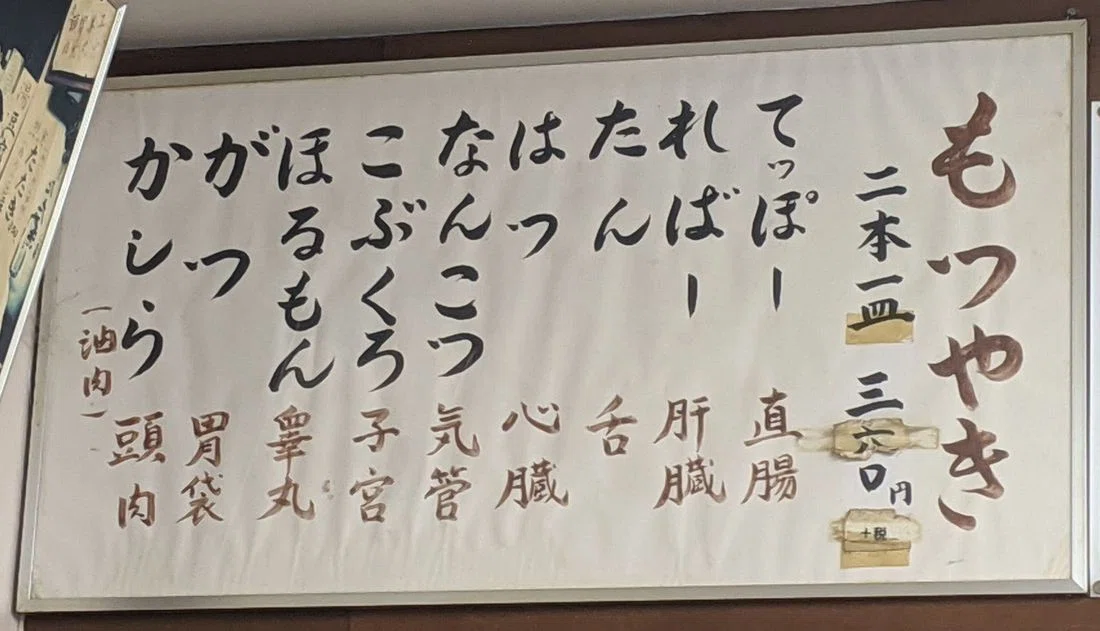 もつやき
二本一皿 三六〇円
+税
てっぽー 直腸
ればー 肝臓
たん 舌
はつ 心臓
なんこつ 気管
こぶくろ 子宮
ほるもん 睾丸
がつ 胃袋
かしら 頭肉
(油肉)